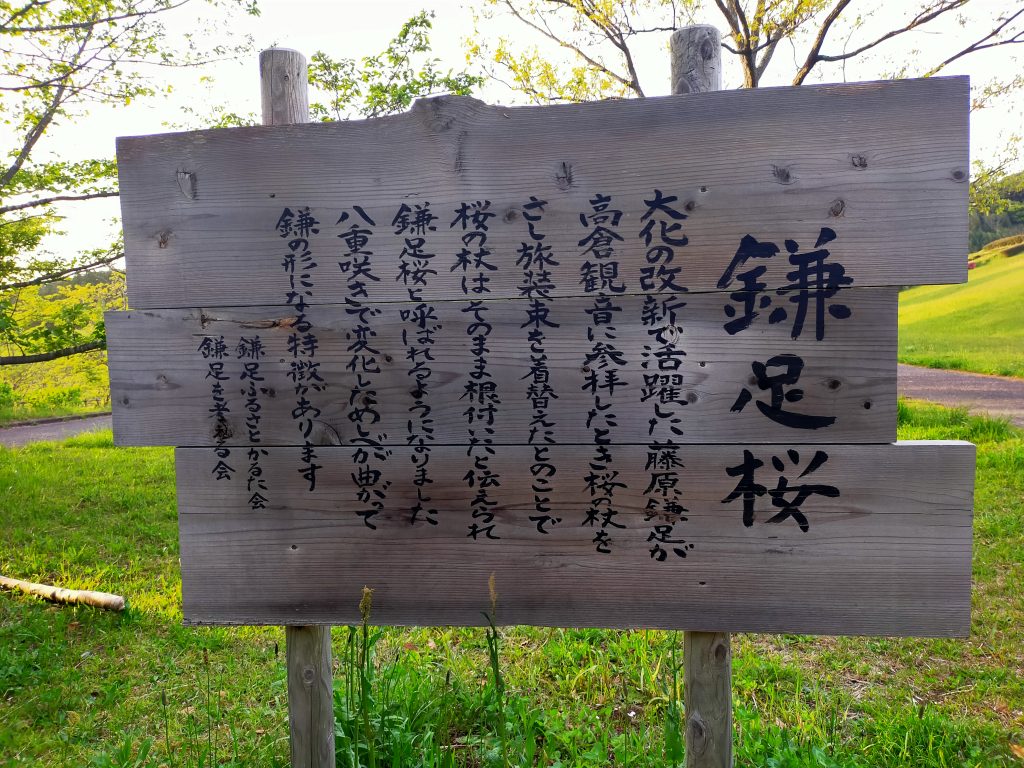 鎌足桜
大化の改新で活躍した藤原鎌足が
高倉観音に参拝したとき桜の杖を
さし旅装束を着替えたとのことで
桜の杖はそのまま根付いたと伝えられ
鎌足桜と呼ばれるようになりました
八重咲きで変化しためしべが曲がって
鎌の形になる特徴があります
鎌足ふるさとかるた会
鎌足を考える会